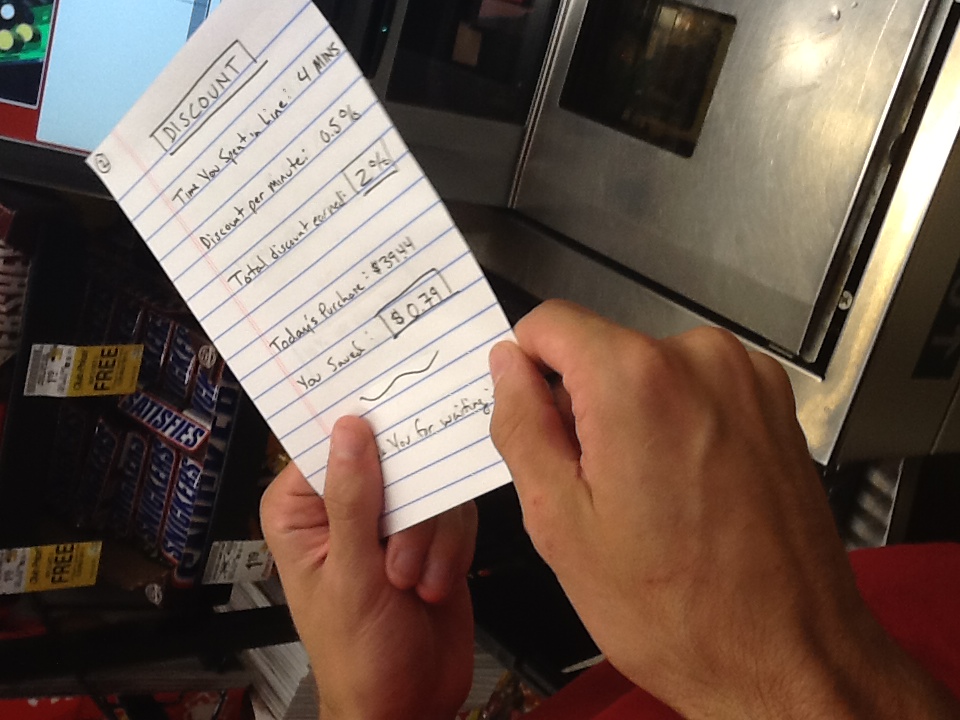 HERSHEY
Club Price
FREE
1 19
Club Price
FREE
SNICKERS
SNICKERS
SNICKERS
1 19
2
DISCOUNT
Time You Spent in Line: 4 MINS
Discount per minute: 0.5%
Total discount earned: 2%
Today's Purchase: $39.44
You Saved: $0.79
You for waiting